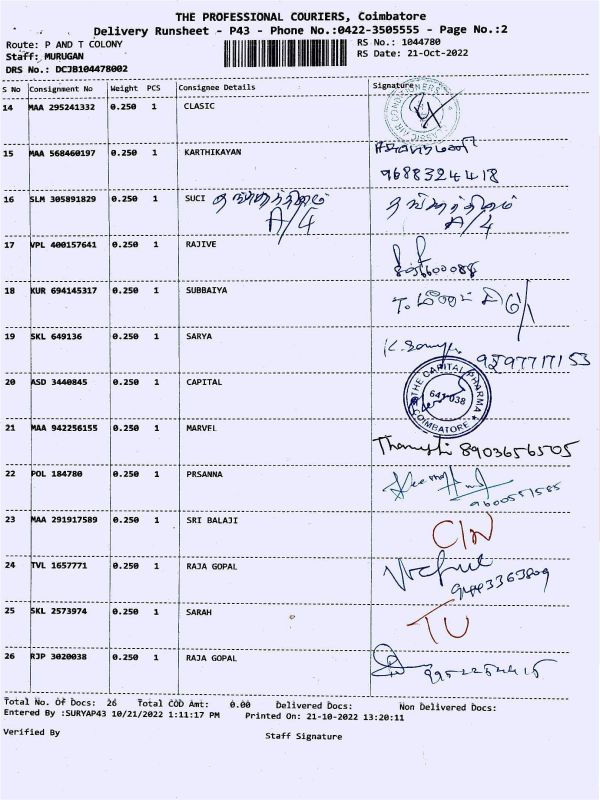 THE PROFESSIONAL COURIERS, Coimbatore
Delivery Runsheet - P43 - Phone No.:0422-3505555 - Page No.:2
Route: P AND T COLONY RS No.: 1044780
Staff: MURUGAN RS Date: 21-Oct-2022
DRS No.: DCJB104478002
S No Consignment No Weight PCS Consignee Details Signature
14 MAA 295241332 0.250 1 CLASIC
15 MAA 568460197 0.250 1 KARTHIKAYAN
9688324418
16 SLM 305891829 0.250 1 SUCI
A/4 A/4
17 VPL 400157641 0.250 1 RAJIVE
18 KUR 694145317 0.250 1 SUBBAIYA
19 SKL 649136 0.250 1 SARYA
9597717153
20 ASD 3440845 0.250 1 CAPITAL THE CAPITAL PHARMA 641 038 COIMBATORE
21 MAA 942256155 0.250 1 MARVEL
8903656505
22 POL 184780 0.250 1 PRSANNA
23 MAA 291917589 0.250 1 SRI BALAJI
24 TVL 1657771 0.250 1 RAJA GOPAL
9443363809
25 SKL 2573974 0.250 1 SARAH
26 RJP 3020038 0.250 1 RAJA GOPAL
Total No. Of Docs: 26 Total COD Amt: 0.00 Delivered Docs: Non Delivered Docs:
Entered By :SURYAP43 10/21/2022 1:11:17 PM Printed On: 21-10-2022 13:20:11
Verified By Staff Signature